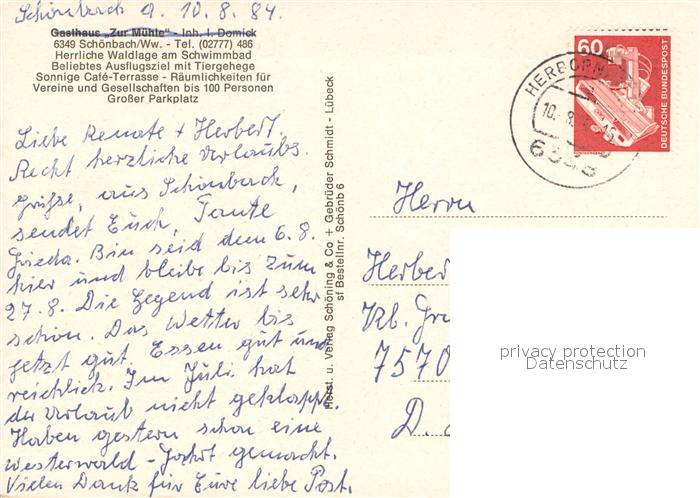 Schönbach d. 10.8.84.
Gasthaus „Zur Mühle" - Inh. I. Domick
6349 Schönbach/Ww. - Tel. (02777) 486
Herrliche Waldlage am Schwimmbad
Beliebtes Ausflugsziel mit Tiergehege
Sonnige Café-Terrasse - Räumlichkeiten für
Vereine und Gesellschaften bis 100 Personen
Großer Parkplatz
Liebe Renate + Herbert,
Recht herzliche Urlaubs
Grüße, aus Schönbach,
sendet Euch, Tante
Frieda. Bin seid dem 6.8.
hier und bleibe bis zum
27.8. Die Gegend ist sehr
schön. Das Wetter bis
jetzt gut. Essen gut und
reichlich. Im Juli hat
der Urlaub nicht geklappt.
Haben gestern schon eine
Westerwald-Fahrt gemacht.
Vielen Dank für Eure liebe Post.
Horst. u. Verlag Schöning & Co + Gebrüder Schmidt - Lübeck
sf Bestellnr. Schönb 6
60
DEUTSCHE BUNDESPOST
HERBORN
10.-8.
6348
Herrn
Herber
7570
privacy protection
Datenschutz